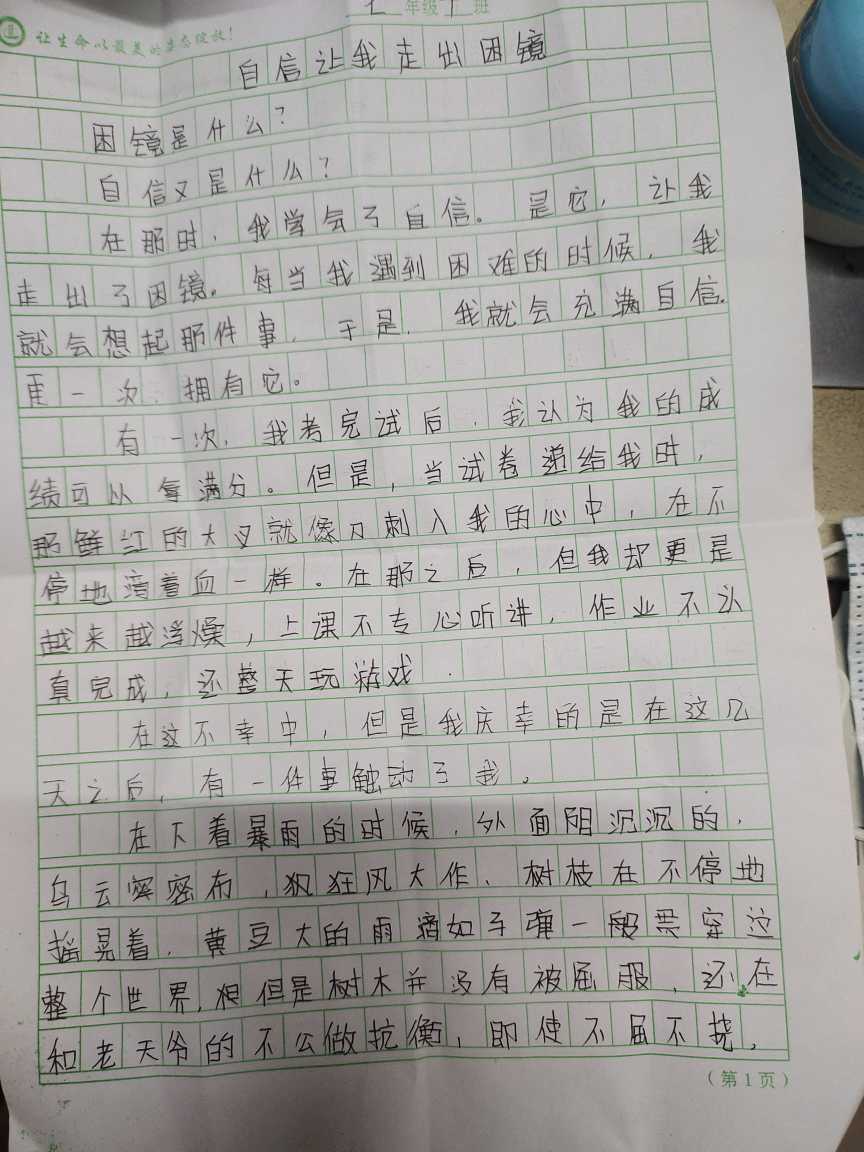 让生命以最美的姿态绽放！
七年级 班
自信让我走出困镜
困镜是什么？
自信又是什么？
在那时，我学会了自信。是它，让我
走出了困镜。每当我遇到困难的时候，我
就会想起那件事，于是，我就会充满自信。
再一次，拥有它。
有一次，我考完试后，我认为我的成
绩可以每满分。但是，当试卷递给我时，
那鲜红的大叉就像刀刺入我的心中，在不
停地滴着血一样。在那之后，但我却更是
越来越浮燥，上课不专心听讲，作业不认
真完成，还整天玩游戏．
在这不幸中，但是我庆幸的是在这几
天之后，有一件事触动了我。
在下着暴雨的时候，外面阴沉沉的，
乌云密布，狂风大作、树枝在不停地
摇晃着，黄豆大的雨滴如子弹一般贯穿这
整个世界，但是树木并没有被屈服，还在
和老天爷的不公做抗衡，即使不屈不挠，
（第1页）